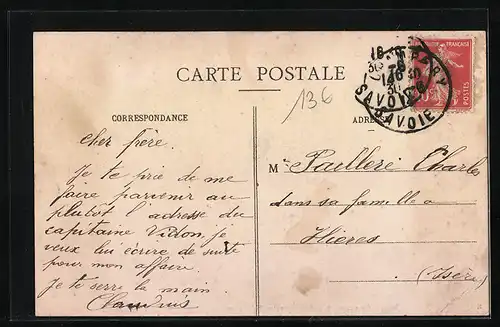 CARTE POSTALE
136
CORRESPONDANCE
ADRE
Cher frère.
Je te prie de me
faire parvenir au
plutôt l'adresse du
capitaine Vidon, je
veux lui écrire de suite
pour mon affaire.
Je te serre la main.
M. Pailleré Charles
dans sa famille a
Hières
(Isère)
SAVOIE
SAVOIE
POSTES